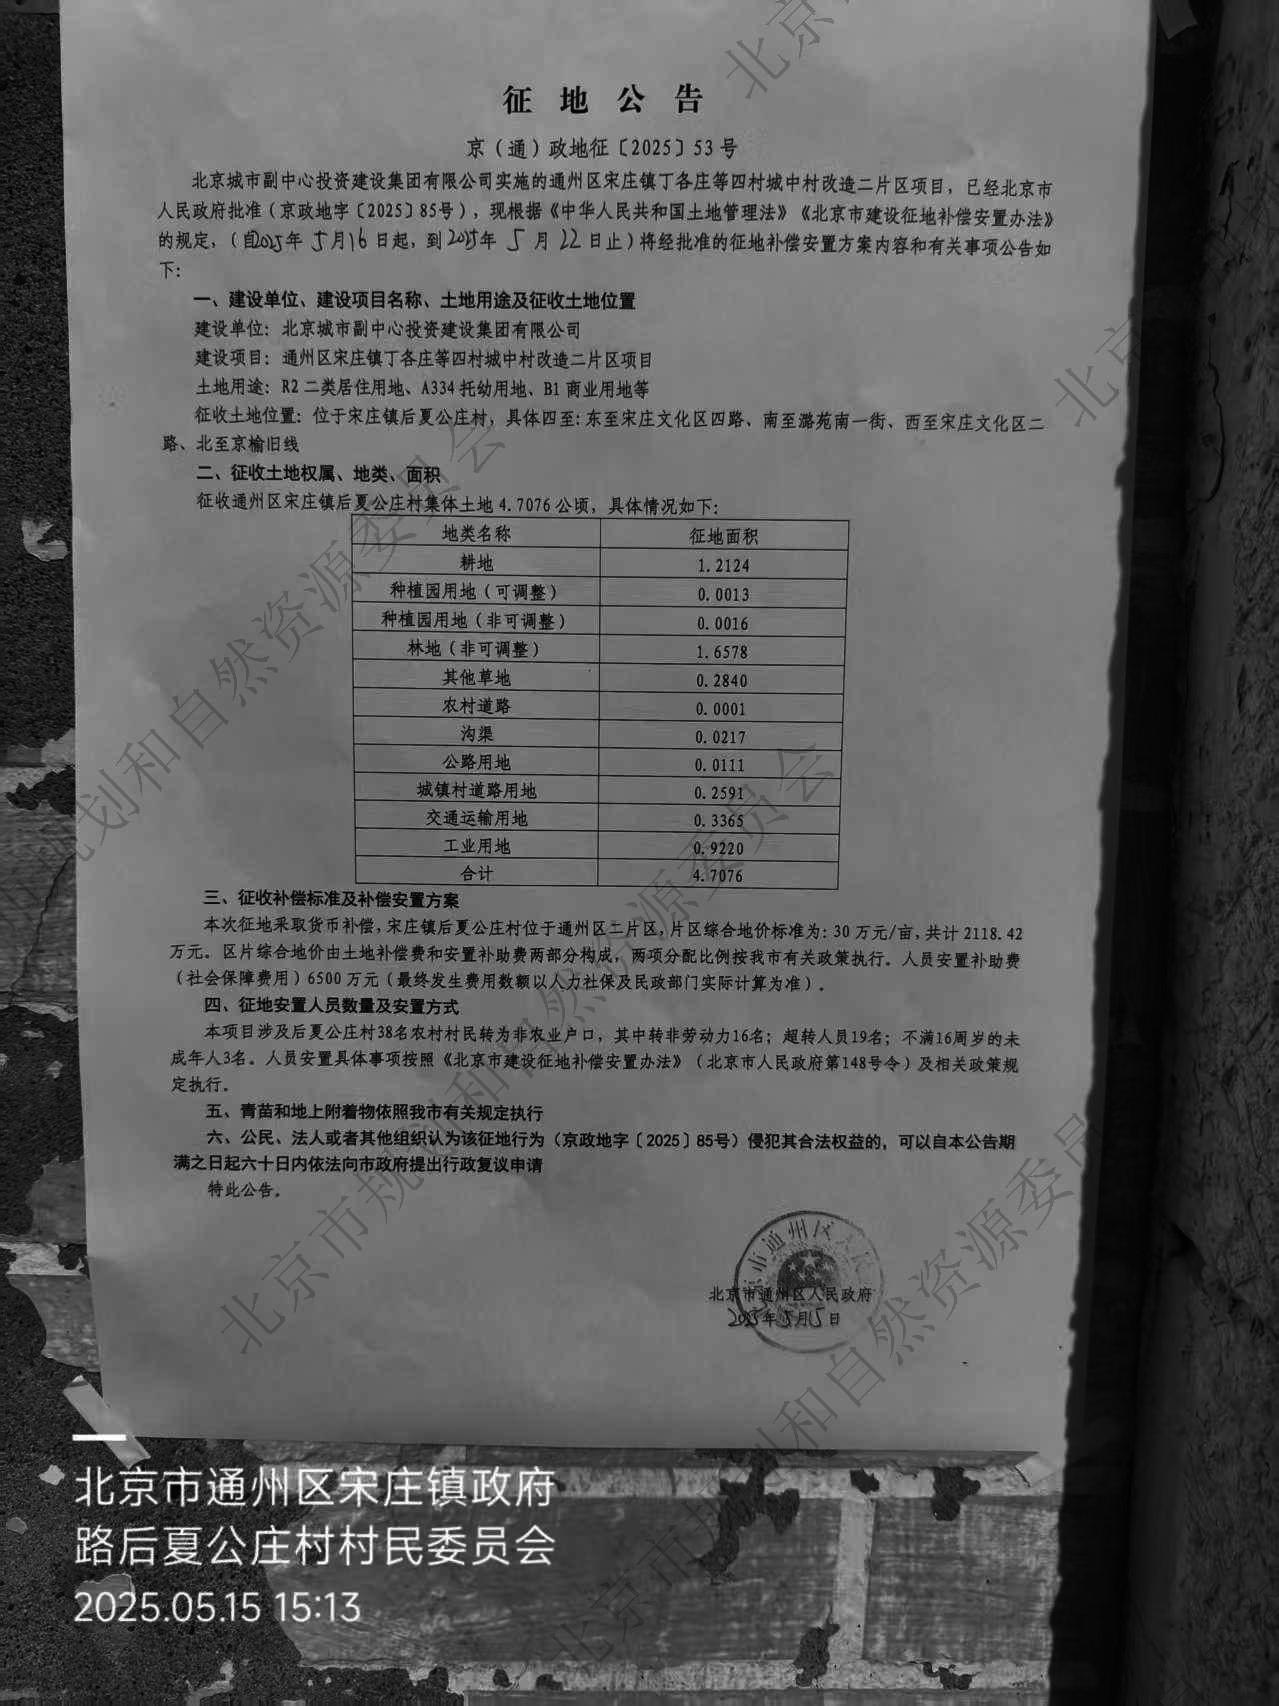 征地公告
京（通）政地征〔2025〕53号
北京城市副中心投资建设集团有限公司实施的通州区宋庄镇丁各庄等四村城中村改造二片区项目，已经北京市
人民政府批准（京政地字〔2025〕85号），现根据《中华人民共和国土地管理法》《北京市建设征地补偿安置办法》
的规定，（自2025年5月16日起，到2025年5月22日止）将经批准的征地补偿安置方案内容和有关事项公告如
下：
一、建设单位、建设项目名称、土地用途及征收土地位置
建设单位：北京城市副中心投资建设集团有限公司
建设项目：通州区宋庄镇丁各庄等四村城中村改造二片区项目
土地用途：R2二类居住用地、A334托幼用地、B1商业用地等
征收土地位置：位于宋庄镇后夏公庄村，具体四至：东至宋庄文化区四路、南至潞苑南一街、西至宋庄文化区二
路、北至京榆旧线
二、征收土地权属、地类、面积
征收通州区宋庄镇后夏公庄村集体土地4.7076公顷，具体情况如下：
地类名称 征地面积
耕地 1.2124
种植园用地（可调整） 0.0013
种植园用地（非可调整） 0.0016
林地（非可调整） 1.6578
其他草地 0.2840
农村道路 0.0001
沟渠 0.0217
公路用地 0.0111
城镇村道路用地 0.2591
交通运输用地 0.3365
工业用地 0.9220
合计 4.7076
三、征收补偿标准及补偿安置方案
本次征地采取货币补偿，宋庄镇后夏公庄村位于通州区二片区，片区综合地价标准为：30万元/亩，共计2118.42
万元。区片综合地价由土地补偿费和安置补助费两部分构成，两项分配比例按我市有关政策执行。人员安置补助费
（社会保障费用）6500万元（最终发生费用数额以人力社保及民政部门实际计算为准）。
四、征地安置人员数量及安置方式
本项目涉及后夏公庄村38名农村村民转为非农业户口，其中转非劳动力16名；超转人员19名；不满16周岁的未
成年人3名。人员安置具体事项按照《北京市建设征地补偿安置办法》（北京市人民政府第148号令）及相关政策规
定执行。
五、青苗和地上附着物依照我市有关规定执行
六、公民、法人或者其他组织认为该征地行为（京政地字〔2025〕85号）侵犯其合法权益的，可以自本公告期
满之日起六十日内依法向市政府提出行政复议申请
特此公告。
北京市通州区人民政府
2025年5月15日
北京市规划和自然资源委员会
北京市通州区宋庄镇政府
路后夏公庄村村民委员会
2025.05.15 15:13